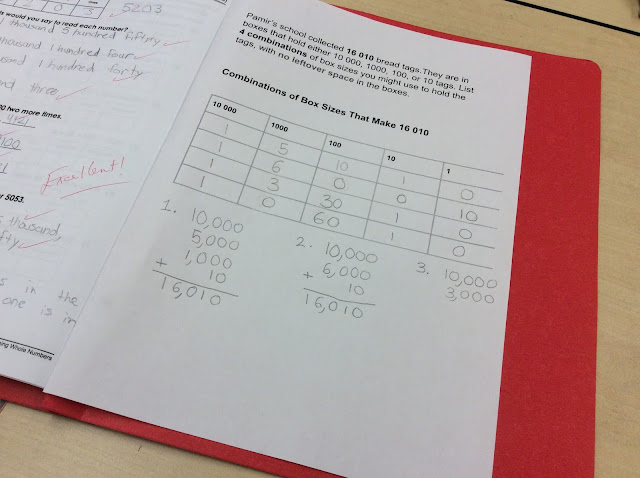 5203
ts would you say to read each number?
thousand 5 hundred fiffty
thousand 1 hundred four
sand 1 hundred forty
nd three
00 two more times.
4421
100
Excellent!
y 5053.
thousand,
fty
s in the
one is in
ng Whole Numbers
Pamir's school collected 16 010 bread tags. They are in
boxes that hold either 10 000, 1000, 100, or 10 tags. List
4 combinations of box sizes you might use to hold the
tags, with no leftover space in the boxes.
Combinations of Box Sizes That Make 16 010
10 000 1000 100 10 1
1 5 10 1 0
1 6 0 0 10
1 3 30 1 0
1 0 60 1 0
1. 10,000
5,000
1,000
+ 10
16,010
2. 10,000
6,000
+ 10
16,010
3. 10,000
3,000